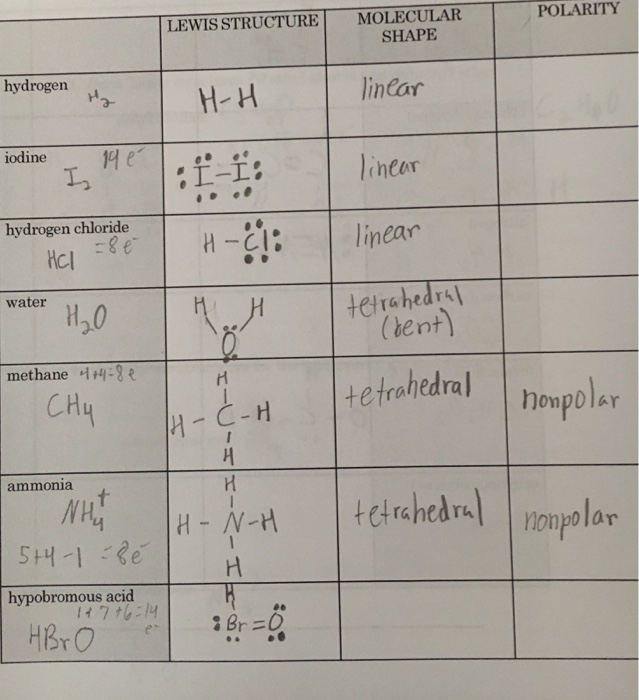 LEWIS STRUCTURE
MOLECULAR
SHAPE
POLARITY
hydrogen
H₂
H-H
linear
iodine
14 e⁻
I₂
:I-I:
linear
hydrogen chloride
=8 e⁻
HCl
H-Cl:
linear
water
H₂O
H H
O
tetrahedral
(bent)
methane 4+4=8 e
CH4
H
H-C-H
H
tetrahedral
nonpolar
ammonia
NH₄⁺
5+4-1=8e⁻
H
H-N-H
H
tetrahedral
nonpolar
hypobromous acid
1+7+6=14
e⁻
HBrO
H
:Br=O